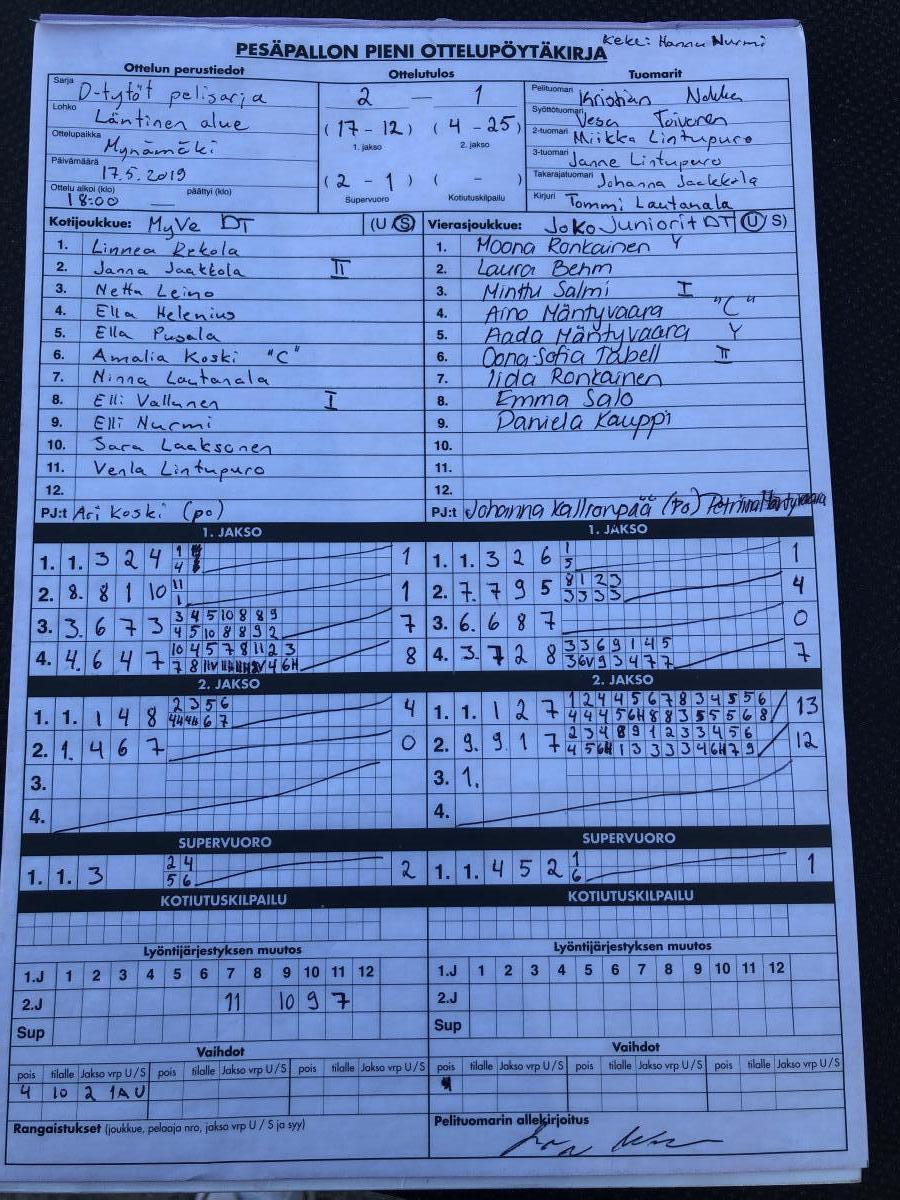 Keke: Hannu Nurmi
PESÄPALLON PIENI OTTELUPÖYTÄKIRJA
Ottelun perustiedot
Sarja D-tytöt pelisarja
Lohko Läntinen alue
Ottelupaikka Mynämäki
Päivämäärä 17.5.2019
Ottelu alkoi (klo) päättyi (klo)
18:00 —
Ottelutulos
2 — 1
(17 - 12) (4 - 25)
1. jakso 2. jakso
(2 - 1) ( - )
Supervuoro Kotiutuskilpailu
Tuomarit
Pelituomari Kristian
Syöttötuomari Vesa Toivonen
2-tuomari Miikka Lintupuro
3-tuomari Janne Lintupuro
Takarajatuomari Johanna Jaakkola
Kirjuri Tommi Lautanala
Kotijoukkue: MyVe DT (U S)
1. Linnea Rekola
2. Janna Jaakkola II
3. Netta Leino
4. Ella Helenius
5. Ella Pusala
6. Amalia Koski "C"
7. Ninna Lautanala
8. Elli Vallunen I
9. Elli Nurmi
10. Sara Laaksonen
11. Venla Lintupuro
12.
PJ:t Ari Koski (po)
Vierasjoukkue: JoKo Juniorit DT (U S)
1. Moona Ronkainen Y
2. Laura Behm
3. Minttu Salmi I
4. Aino Mäntyvaara "C"
5. Aada Mäntyvaara Y
6. Oona-Sofia Tabell II
7. Iida Ronkainen
8. Emma Salo
9. Daniela Kauppi
10.
11.
12.
PJ:t Johanna Kallionpää (Po)
1. JAKSO
1. 1. 3 2 4 1
4 1
2. 8. 8 1 10 11
1 1
3. 3. 6 7 3 3 4 5 10 8 8 9
4 5 10 8 8 9 2 7
4. 4. 6 4 7 10 4 5 7 8 11 2 3
8
1. JAKSO
1. 1. 3 2 6 1
5 1
2. 7. 7 9 5 8 1 2 3
3 3 3 3 4
3. 6. 6 8 7 0
4. 3. 7 2 8 3 3 6 9 1 4 5
3 6V 9 3 4 7 7 7
2. JAKSO
1. 1. 1 4 8 2 3 5 6
4
2. 1. 4 6 7 0
3.
4.
2. JAKSO
1. 1. 1 2 7 1 2 4 4 5 6 7 8 3 4 5 5 6
4 4 4 5 6H 8 8 3 5 5 5 6 8 13
2. 9. 9 1 7 2 3 4 8 9 1 2 3 3 4 5 6
4 5 6H 1 3 3 3 3 4 6H 7 9 12
3. 1.
4.
SUPERVUORO
1. 1. 3 2 4
5 6 2
SUPERVUORO
1. 1. 4 5 2 1
6 1
KOTIUTUSKILPAILU
KOTIUTUSKILPAILU
Lyöntijärjestyksen muutos
1.J 1 2 3 4 5 6 7 8 9 10 11 12
2.J 11 10 9 7
Sup
Lyöntijärjestyksen muutos
1.J 1 2 3 4 5 6 7 8 9 10 11 12
2.J
Sup
Vaihdot
pois tilalle Jakso vrp U/S pois tilalle Jakso vrp U/S pois tilalle Jakso vrp U/S
4 10 2 1A U
Vaihdot
pois tilalle Jakso vrp U/S pois tilalle Jakso vrp U/S pois tilalle Jakso vrp U/S
Rangaistukset (joukkue, pelaaja nro, jakso vrp U / S ja syy)
Pelituomarin allekirjoitus